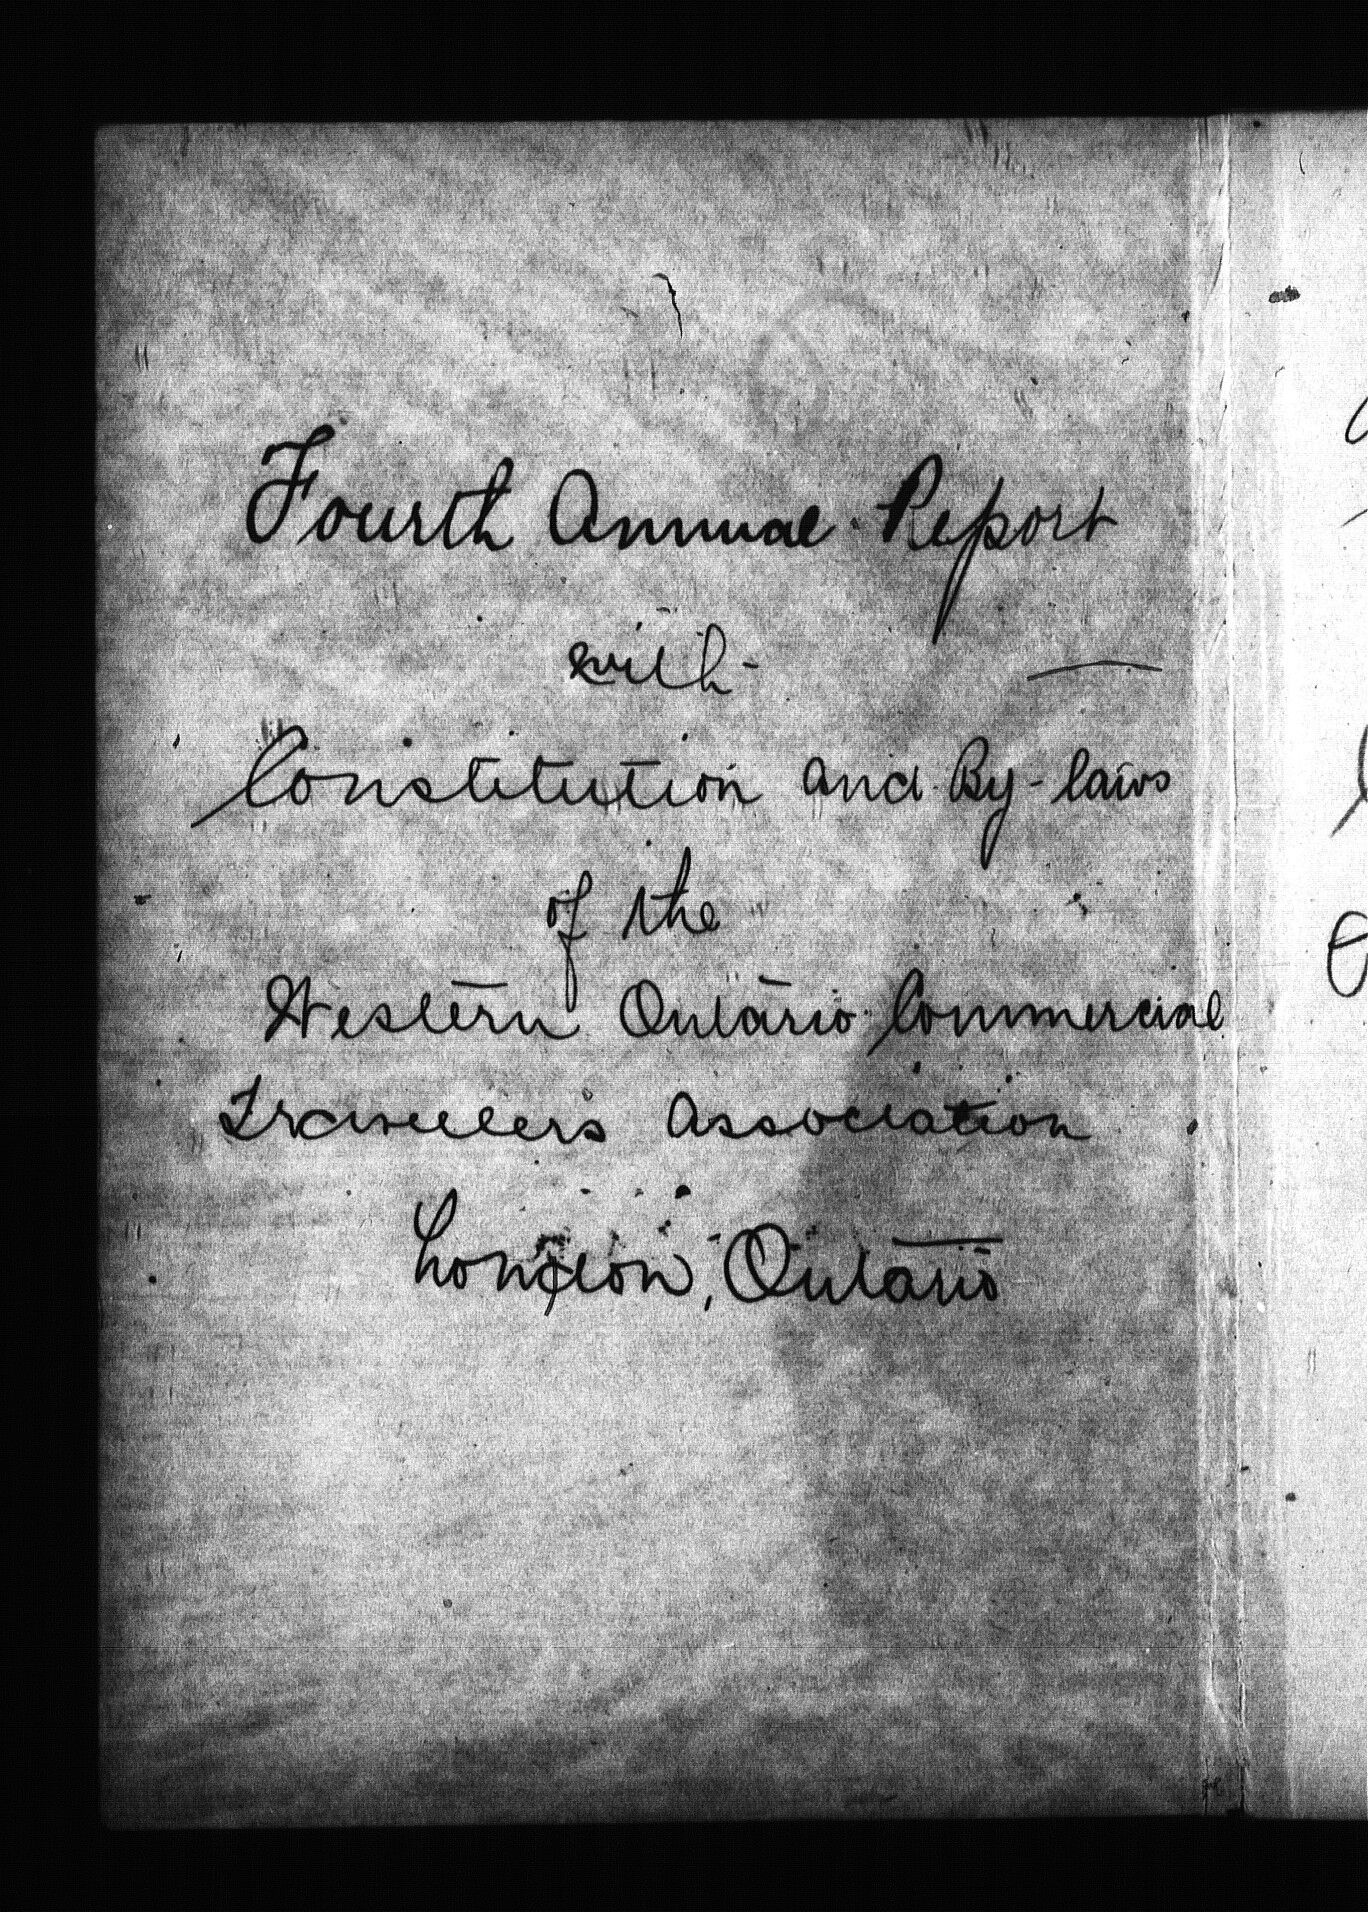 Fourth Annual Report
with
Constitution and By-laws
of the
Western Ontario Commercial
Travellers Association
London, Ontario